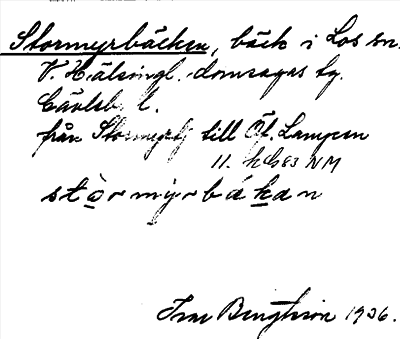 Stormyrbäcken, bäck i Los sn.
V. Hälsingl. domsagas tg.
Gävleb. l.
från Stormyrtj till Öf. Lampen
11. NM
stormyrbäkan
Bengtsson 1936.